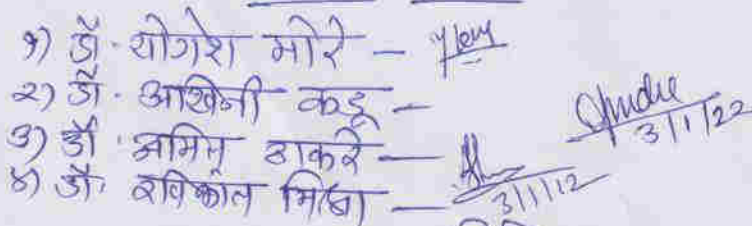 १) डॉ. योगेश मोरे –
२) डॉ. अश्विनी कडू – 3/1/22
३) डॉ. अमित ठाकरे –
४) डॉ. रविकांत – 3/1/12